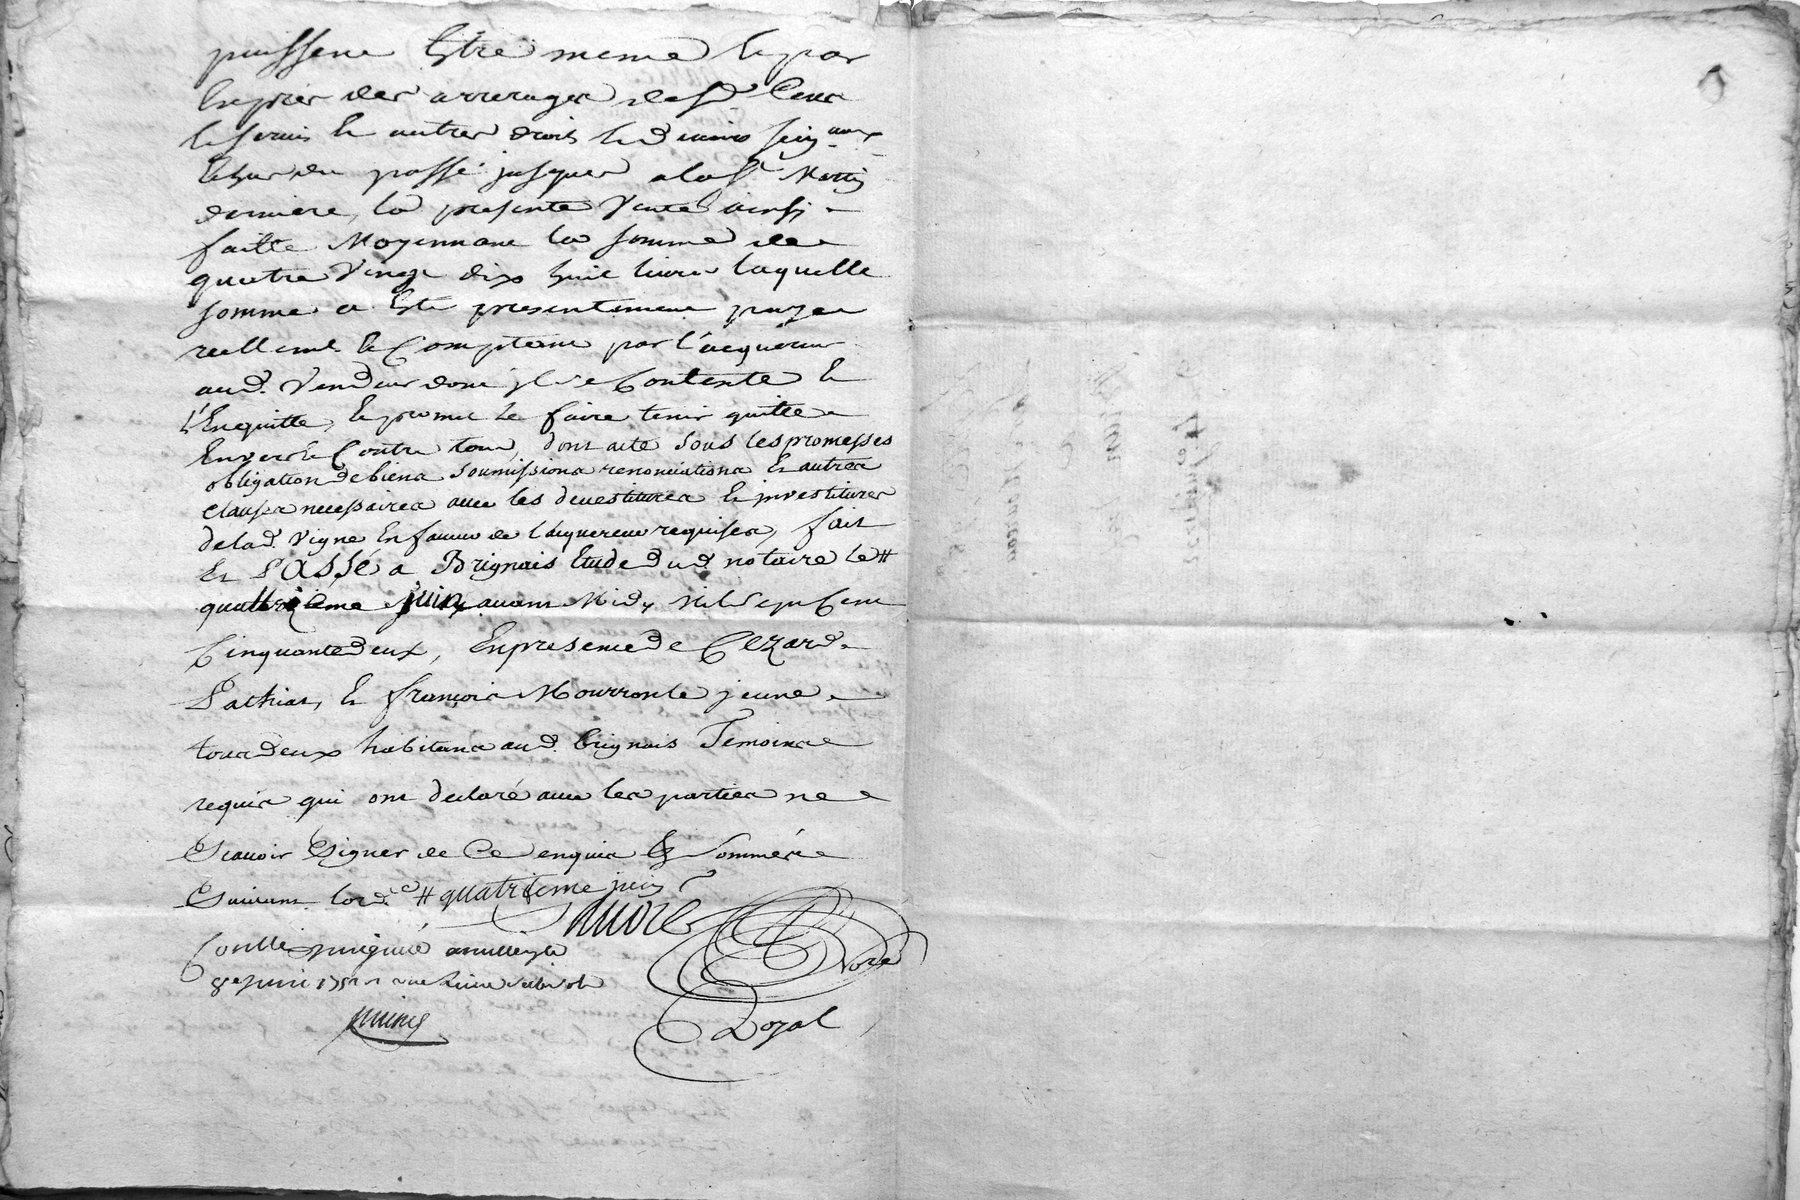 puissent Estre meme Et par
Exprés des arrerages desd. Cens
et servis et autres droits et devoirs seig.aux
Echus du passé jusques a la st Martin
derniere, la presente Vente ainsi
faitte Moyennant la somme de
quatre Vingt dix huit livres laquelle
somme a Esté presentement payée
reellemt. et Comptant par l'acquéreur
aud. Vendeur dont il se Contente et
l'En quitte, et promet le faire tenir quitte
Envers et Contre tous, dont acte sous les promesses
obligation de biens soumissions renonciations et autres
clauses necessaires avec les devestitures et investitures
de lad. Vigne En faveur de l'acquereur requises, fait
Et Passé a Brignais Etude dud notaire le #
quattriéme juin avant Midy Mil sept Cent
Cinquante deux, En presence de Cezard
Pathias, et françois Mourron le jeune
tous deux habitans aud. brignais Temoins
requis qui ont declaré avec les parties ne
Scavoir Signer de Ce enquis et Sommés
Suivant lord.ce # quatrieme juin
Conllé
8e juin 1752
Nore
Royal